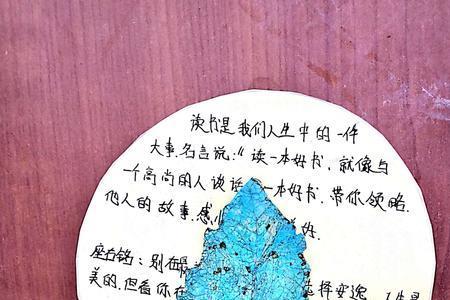 读书是我们人生中的一件
大事.名言说:"读一本好书,就像与
一个高尚的人谈话 一本好书.带你领略.
他人的故事.感
座右铭:别在
美的.但看你在 选择安逸